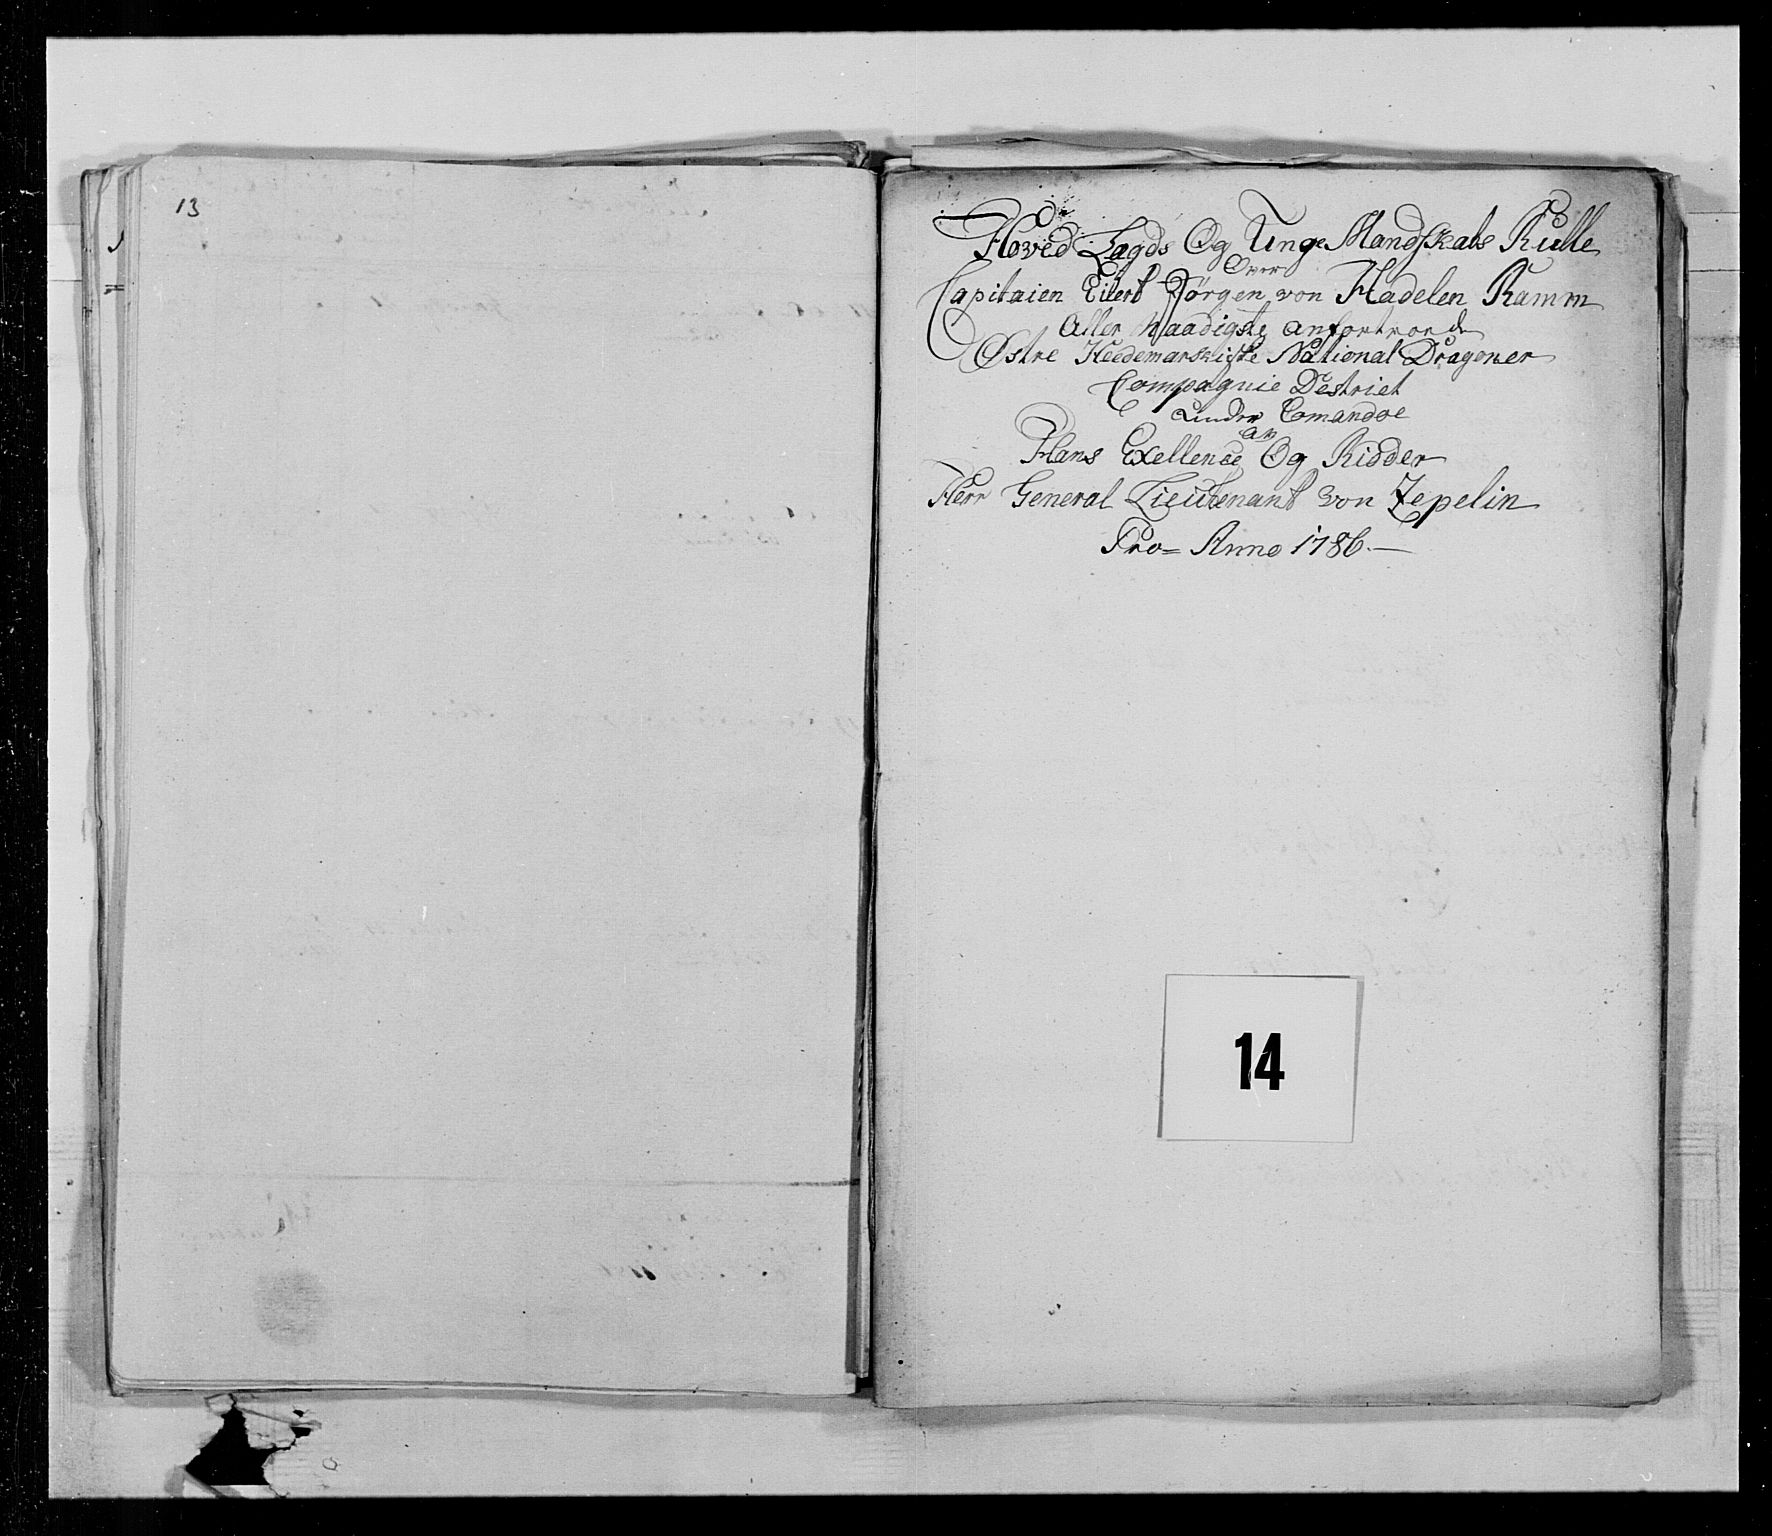 13
Hoved Lægds Og Unge Mandskabs Rulle
Over
Capitaien Eilert Jörgen von Hadelen Ramm
Aller Naadigste anfortroede
Østre Heedemarkiske National Dragoner
Compagnie Destrict
under Comandoe
av
Hans Exellence Og Ridder
Herr General Lieutenant von Zepelin
Pro= Anno 1786.—
14